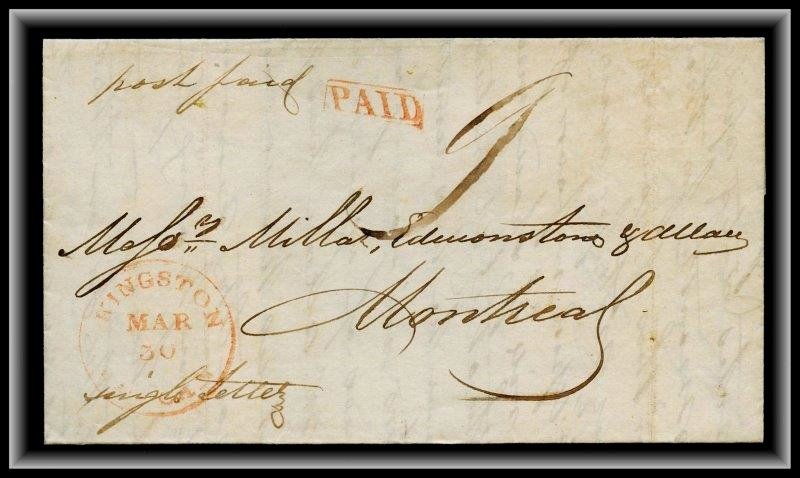 post paid
PAID
9
Messrs Millar, Edmonstone & Allan
Montreal
KINGSTON
MAR
30
single letter